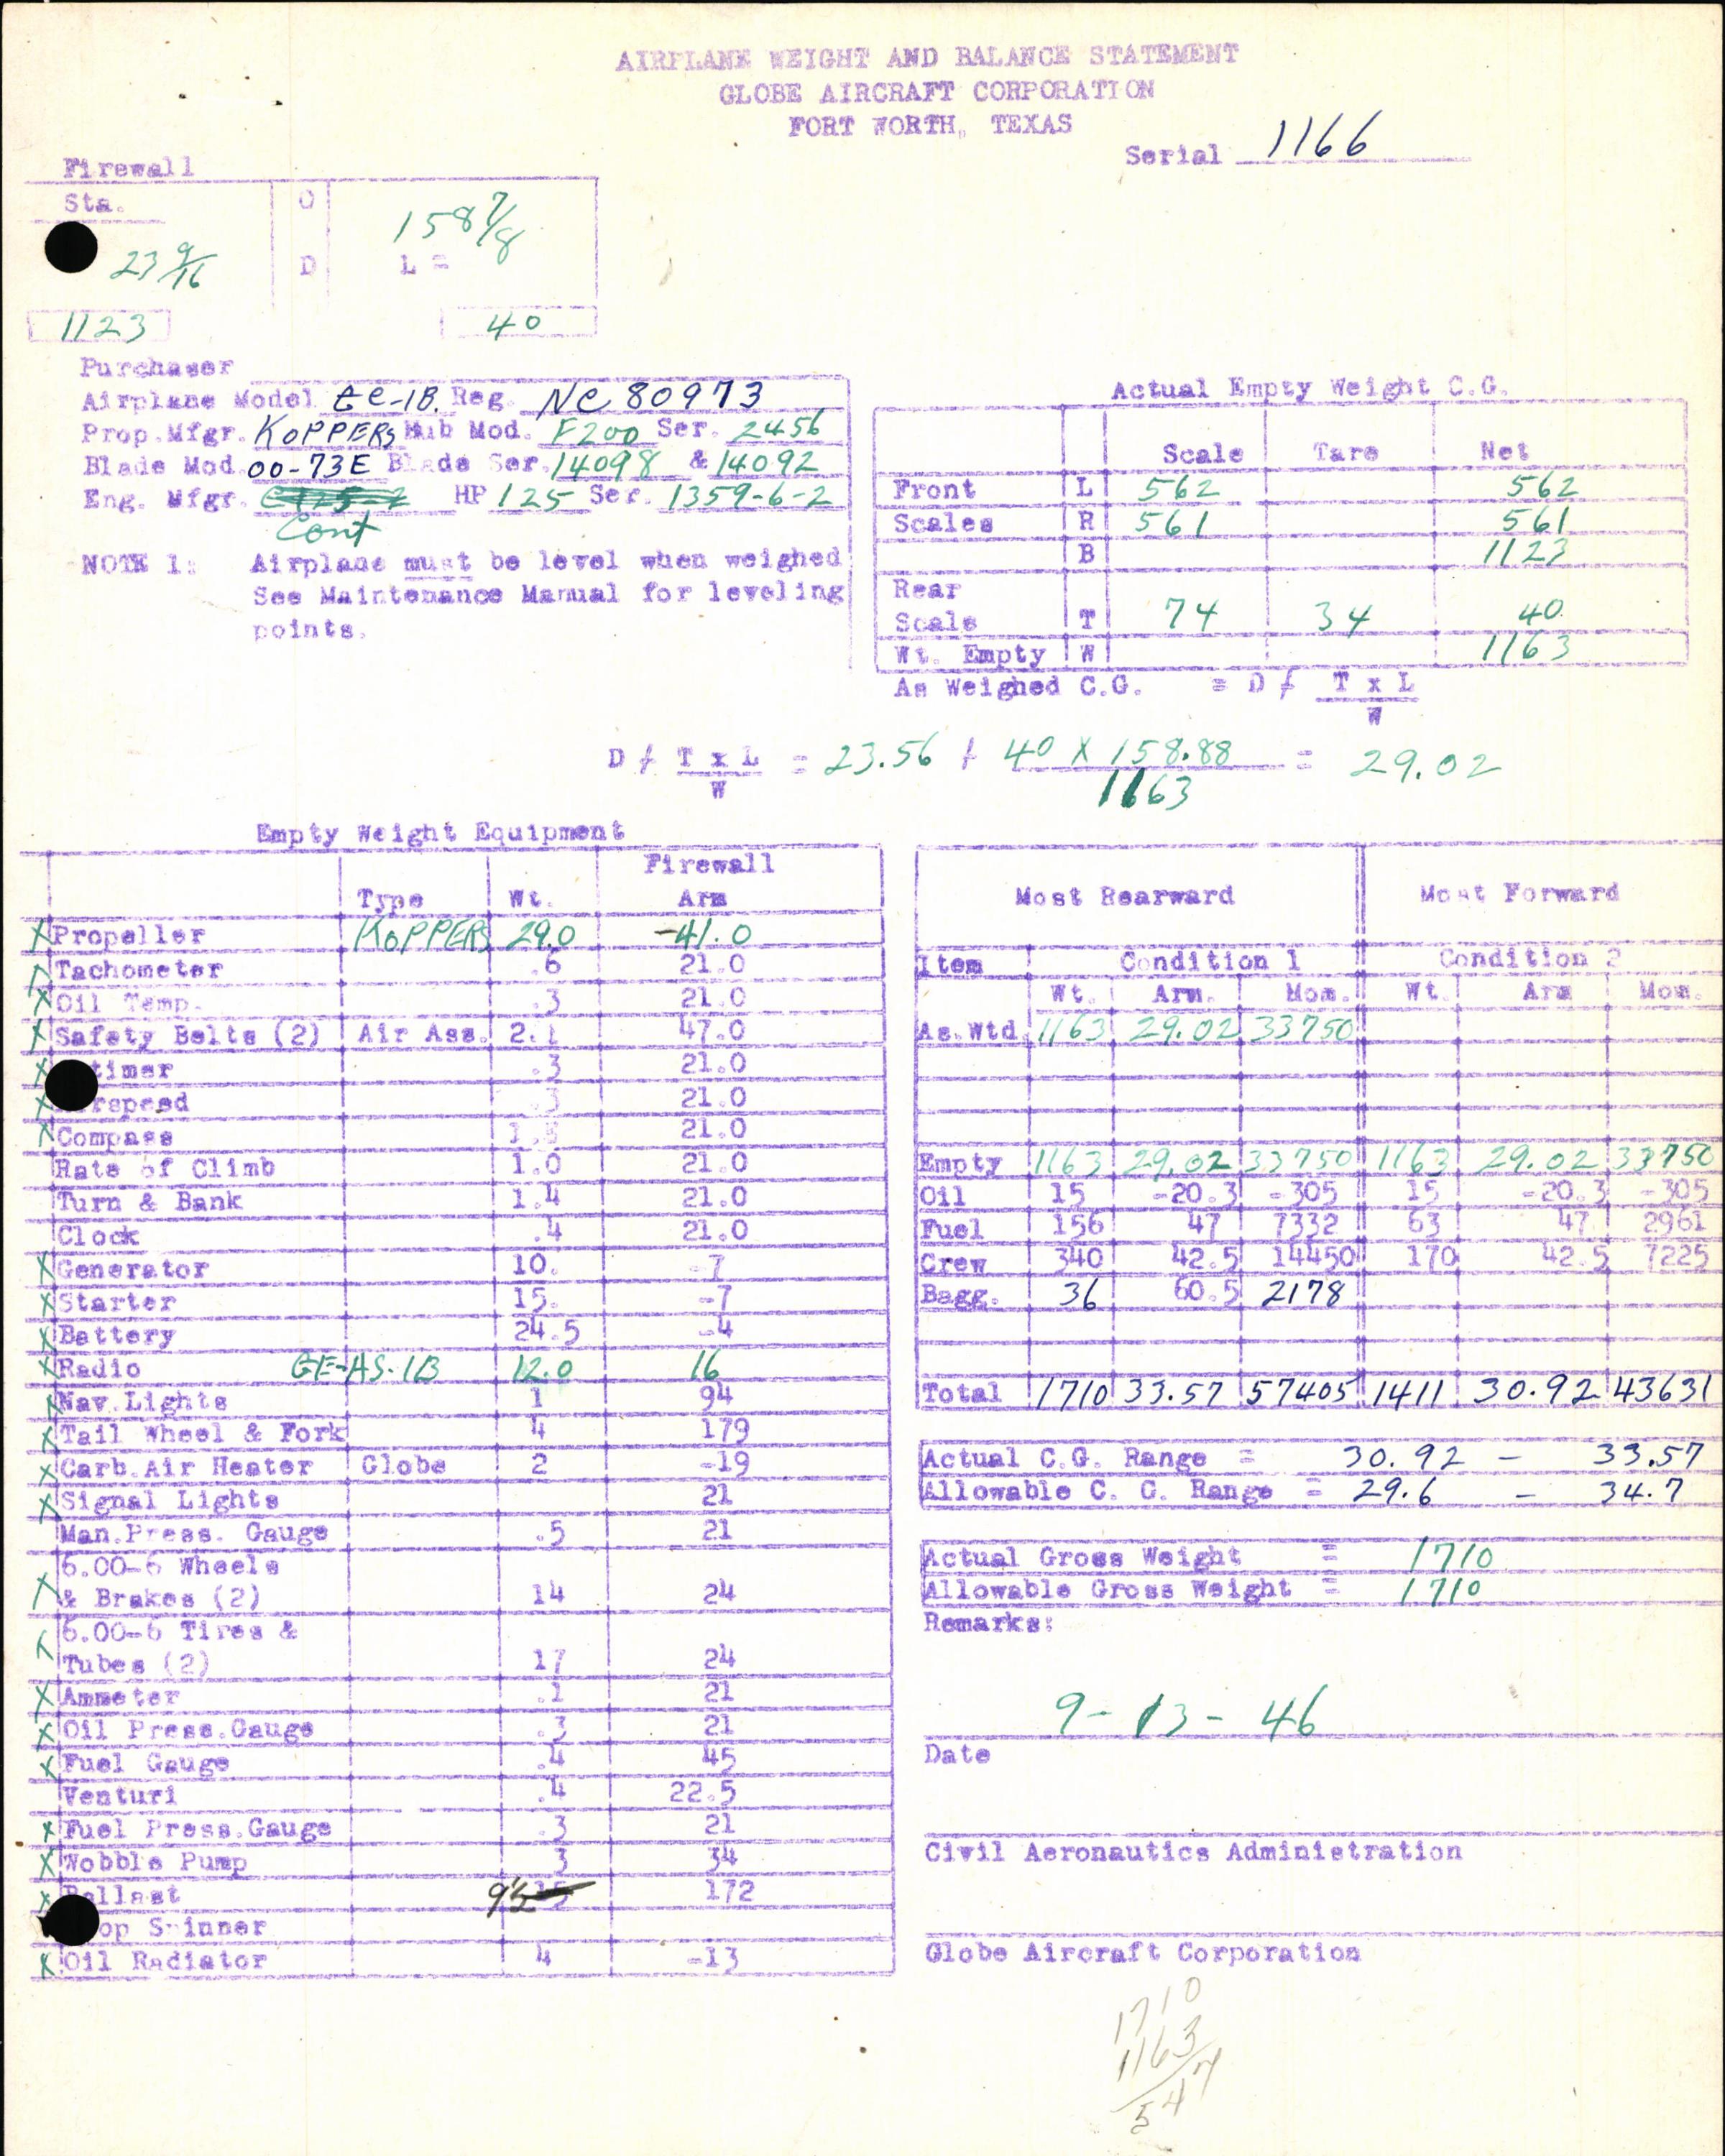 AIRPLANE WEIGHT AND BALANCE STATEMENT
GLOBE AIRCRAFT CORPORATION
FORT WORTH, TEXAS
Serial 1166
Firewall
Sta. O
158 7/8
23 9/16 D L =
1123 40
Purchaser
Airplane Model GC-1B Reg. NC 80973
Prop.Mfgr. KOPPERS Hub Mod. F200 Ser. 2456
Blade Mod. 00-73E Blade Ser. 14098 & 14092
Eng. Mfgr. HP 125 Ser. 1359-6-2
Cont
NOTE 1: Airplane must be level when weighed
See Maintenance Manual for leveling
points.
Actual Empty Weight C.G.
Scale Tare Net
Front L 562 562
Scales R 561 561
B 1123
Rear
Scale T 74 34 40
Wt. Empty W 1163
As Weighed C.G. = D / T x L
W
D / T x L = 23.56 / 40 X 158.88 = 29.02
W 1163
Empty Weight Equipment
Firewall
Type Wt. Arm
X Propeller KOPPERS 29.0 -41.0
Tachometer .6 21.0
X Oil Temp. .3 21.0
X Safety Belts (2) Air Ass. 2.1 47.0
X timer .3 21.0
X rspeed .3 21.0
X Compass 21.0
Rate of Climb 1.0 21.0
Turn & Bank 1.4 21.0
Clock .4 21.0
X Generator 10. -7
X Starter 15. -7
X Battery 24.5 -4
X Radio GE-AS-1B 12.0 16
X Nav.Lights 1 94
X Tail Wheel & Fork 4 179
X Carb.Air Heater Globe 2 -19
X Signal Lights 21
Man.Press. Gauge .5 21
6.00-6 Wheels
X & Brakes (2) 14 24
6.00-6 Tires &
X Tubes (2) 17 24
X Ammeter .1 21
X Oil Press.Gauge .3 21
X Fuel Gauge .4 45
Venturi .4 22.5
X Fuel Press.Gauge .3 21
X Wobble Pump 3 34
X Ballast 9½ 15 172
op Spinner
X Oil Radiator 4 -13
Most Rearward Most Forward
Item Condition 1 Condition 2
Wt. Arm. Mom. Wt. Arm Mom.
As.Wtd. 1163 29.02 33750
Empty 1163 29.02 33750 1163 29.02 33750
Oil 15 -20.3 -305 15 -20.3 -305
Fuel 156 47 7332 63 47 2961
Crew 340 42.5 14450 170 42.5 7225
Bagg. 36 60.5 2178
Total 1710 33.57 57405 1411 30.92 43631
Actual C.G. Range = 30.92 - 33.57
Allowable C. G. Range = 29.6 - 34.7
Actual Gross Weight = 1710
Allowable Gross Weight = 1710
Remarks:
9-13-46
Date
Civil Aeronautics Administration
Globe Aircraft Corporation
1710
1163
547